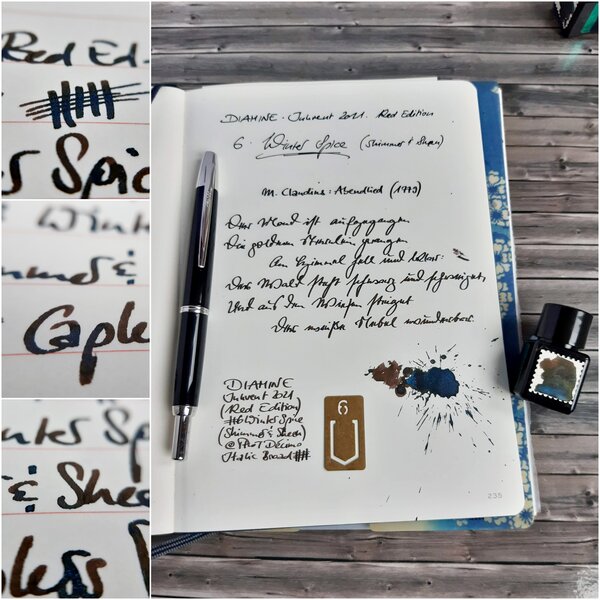 Red Ed-
s Spic
Winte
mmer &
Caple
nter Sp
& Shee
pless
DIAMINE · Inkvent 2021. Red Edition
6 · Winter Spice (Shimmer & Sheen)
M. Claudius: Abendlied (1779)
Der Mond ist aufgegangen
Die goldnen Sternlein prangen
Am Himmel hell und klar:
Der Wald steht schwarz und schweiget,
Und aus den Wiesen steiget
Der weiße Nebel wunderbar.
DIAMINE
Inkvent 2021
(Red Edition)
#6 Winter Spice
(Shimmer & Sheen)
@ Pilot Décimo
Italic Broad ##
6
235